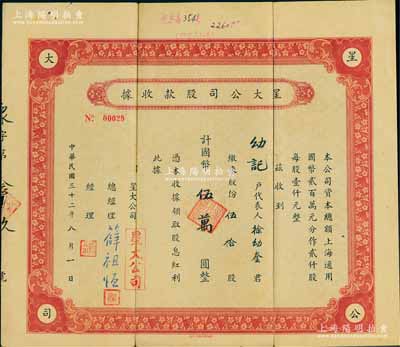 上海陽明拍賣
呈大公司股款收據
No 00029
本公司資本總額上海通用
國幣貳百萬元分作貳仟股
每股壹仟元整
茲收到
幼記 戶代表人 徐幼奎 君
繳來股份 伍拾 股
計國幣 伍萬 圓整
憑本收據領取股息紅利
此據
呈大公司
總經理 薛祖恆
經理
中華民國三十二年八月一日
呈
大
公
司